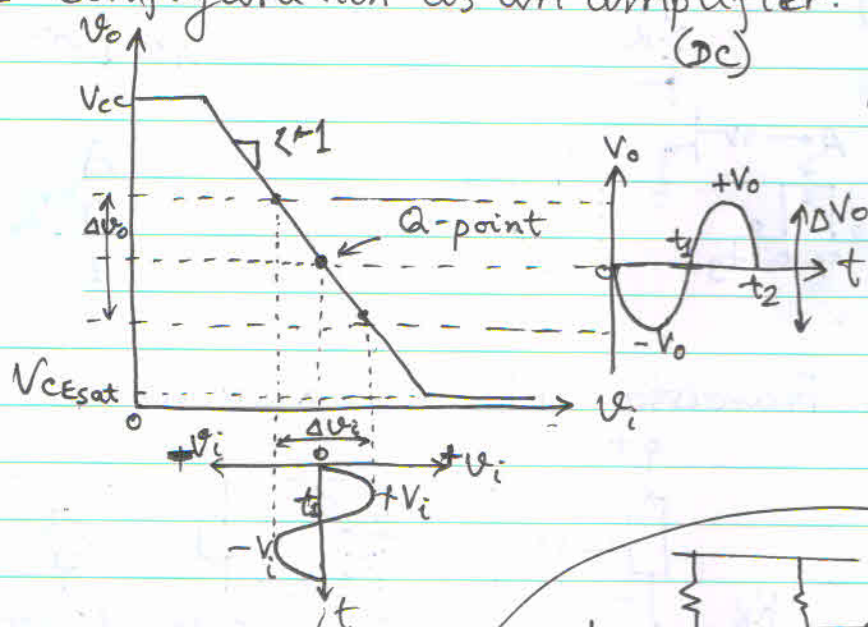 configuration as an amplifier.
(DC)
vo
Vcc
<-1
Δvo
Q-point
VCEsat
0
vi
Vo
+Vo
ΔVo
t1
0
t
t2
-Vo
Δvi
vi
0
+vi
t1
+Vi
-Vi
t